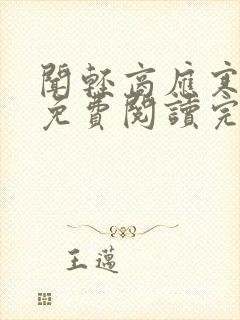 聞輕高雁寒
免費閱讀完
王邁